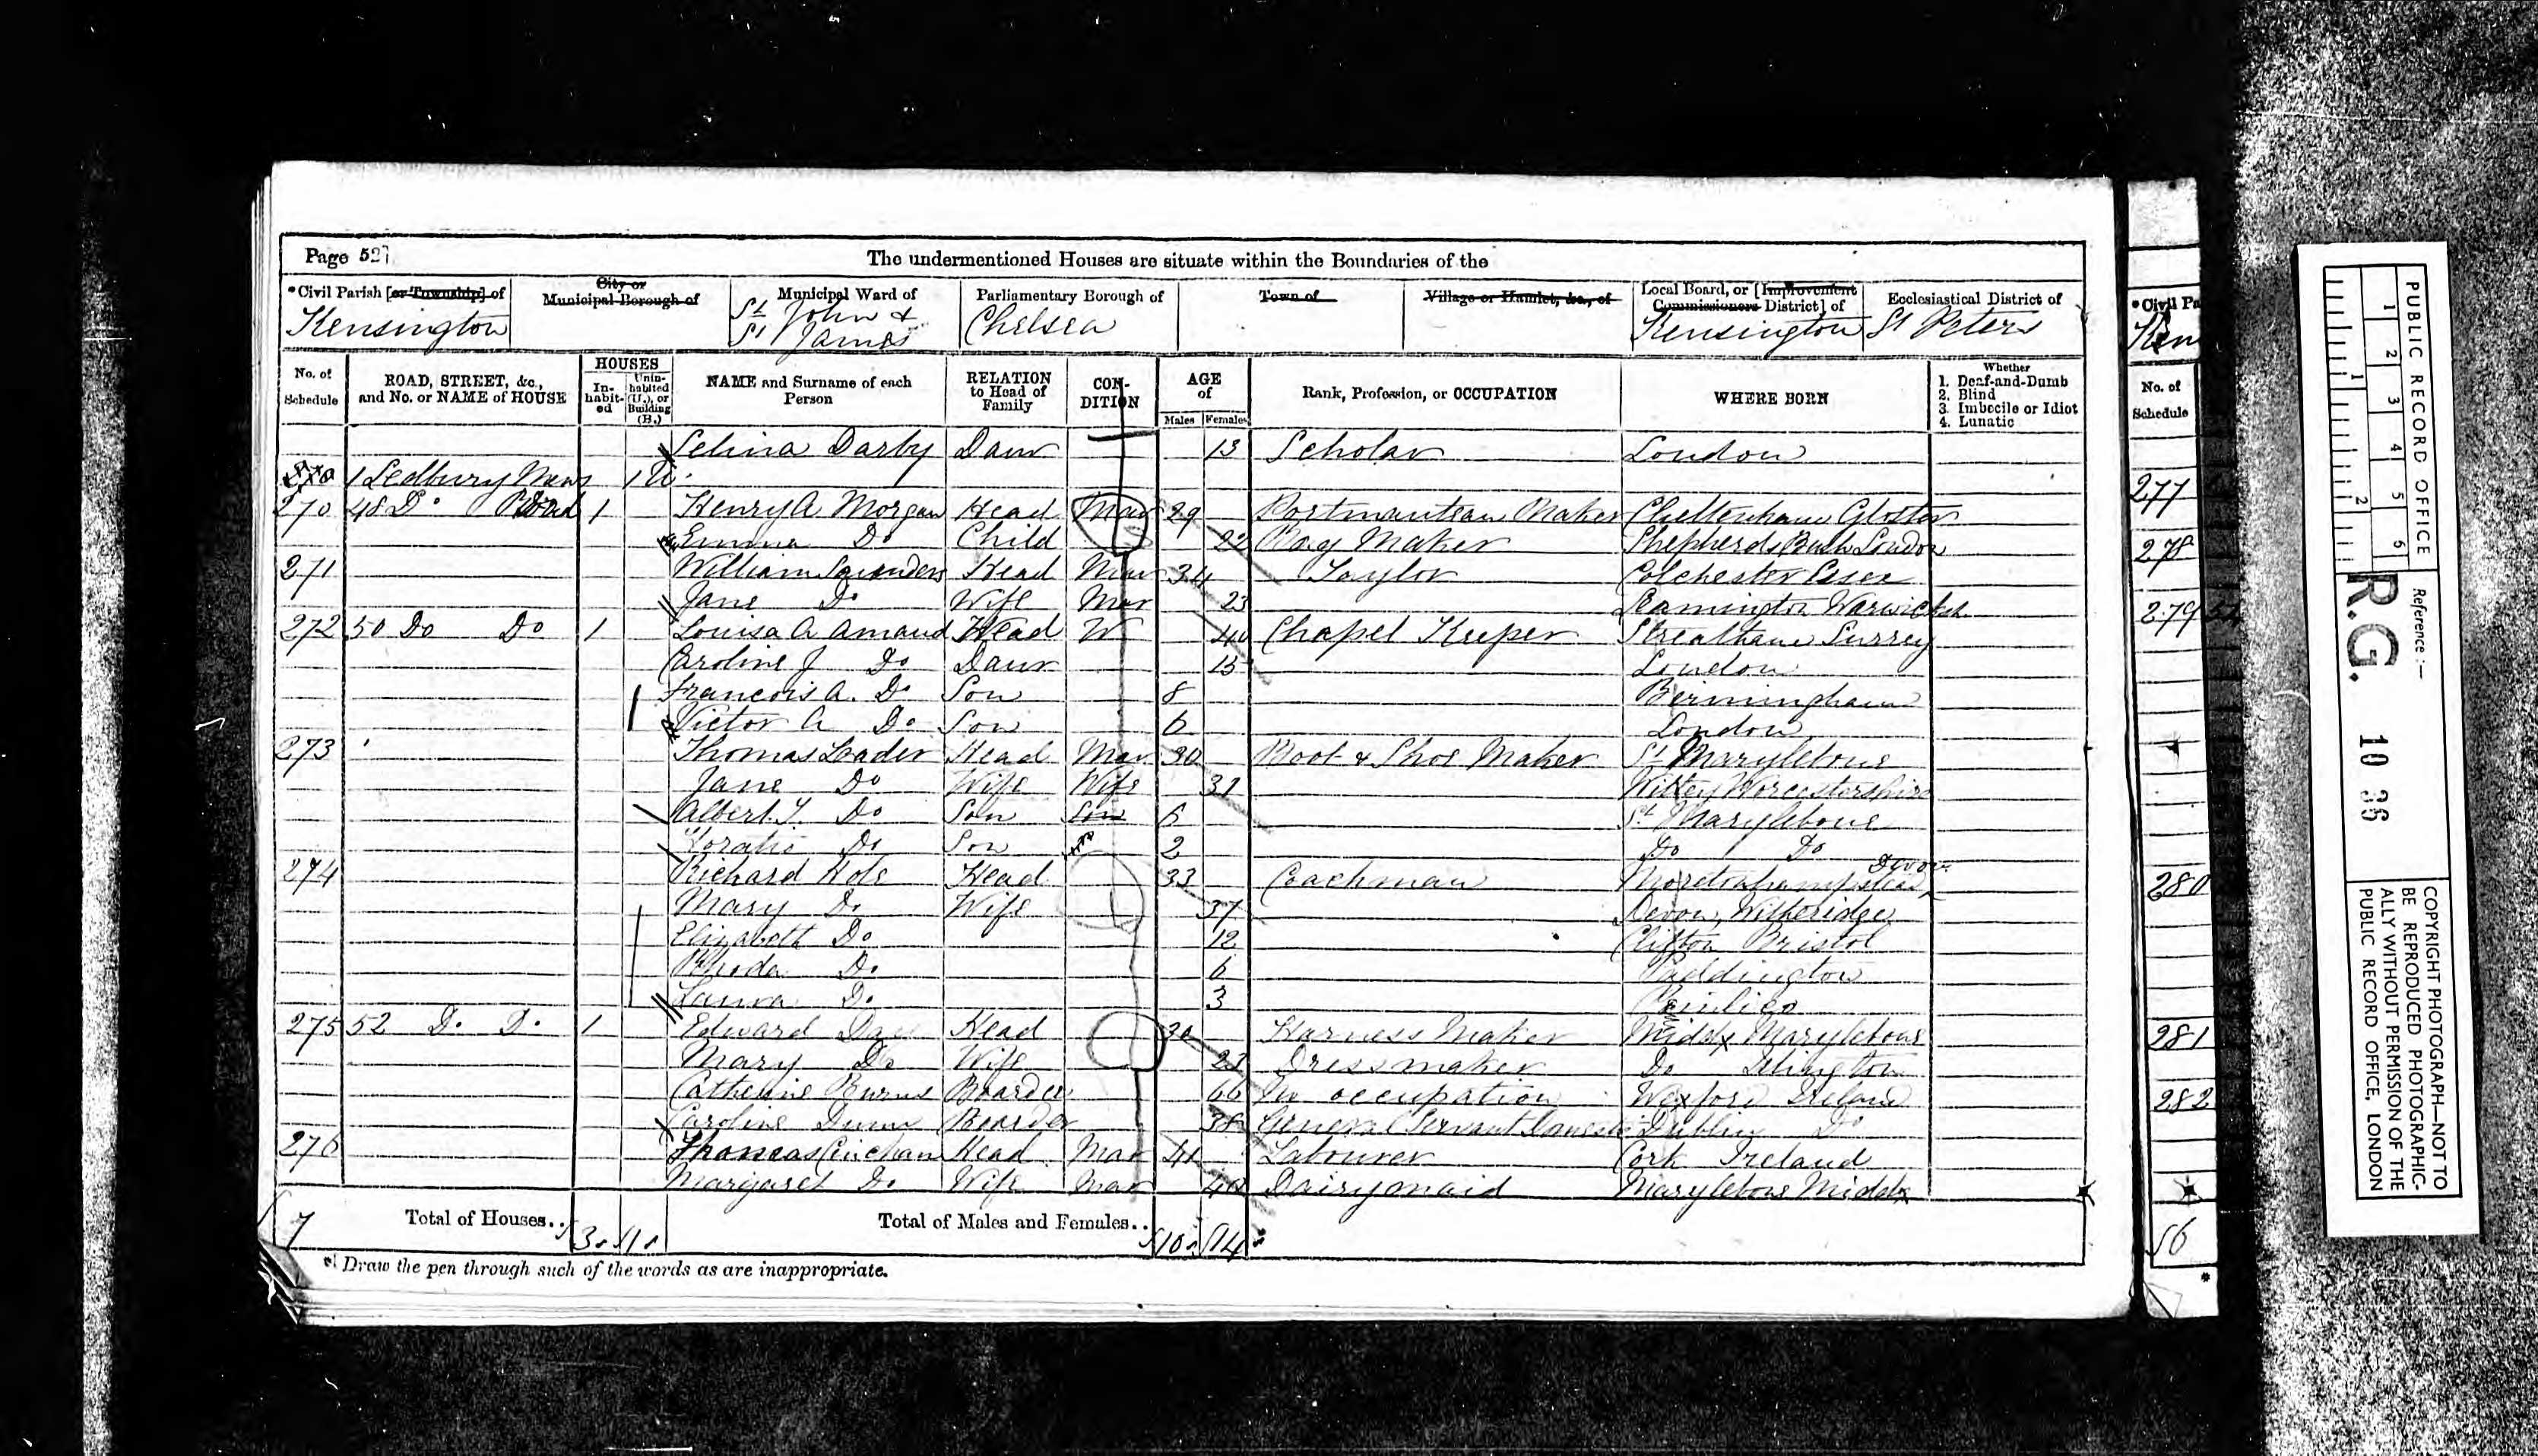 Page 52
The undermentioned Houses are situate within the Boundaries of the
*Civil Parish [or Township] of
Kensington
City or Municipal Borough of
Municipal Ward of
St John &
St James
Parliamentary Borough of
Chelsea
Town of
Village or Hamlet, &c., of
Local Board, or [Improvement Commissioners District] of
Kensington
Ecclesiastical District of
St Peters
No. of Schedule
ROAD, STREET, &c., and No. or NAME of HOUSE
HOUSES
In-habit-ed
Unin-habited (U.), or Building (B.)
NAME and Surname of each Person
RELATION to Head of Family
CON-DITION
AGE of
Males Females
Rank, Profession, or OCCUPATION
WHERE BORN
Whether
1. Deaf-and-Dumb
2. Blind
3. Imbecile or Idiot
4. Lunatic
Selina Darby Daur 13 Scholar London
270 1 Ledbury Mews 1 U
270 48 Do Road 1 Henry A Morgan Head Mar 29 Portmanteau Maker Cheltenham Gloster
Emma Do Child 22 Bag Maker Shepherds Bush London
271 William Saunders Head Mar 34 Taylor Colchester Essex
Jane Do Wife Mar 23 Leamington Warwicksh
272 50 Do Do 1 Louisa A Amaud Head W 40 Chapel Keeper Streatham Surrey
Caroline J Do Daur 15 London
Francois A. Do Son 8 Birmingham
Victor A Do Son 6 London
273 Thomas Leader Head Mar 30 Boot & Shoe Maker St Marylebone
Jane Do Wife Wife 31 Witley Worcestershire
Albert T. Do Son Son 6 St Marylebone
Horatio Do Son 2 Do Do
274 Richard Hole Head 33 Coachman Moretonhampstead Devon
Mary Do Wife 37 Devon, Witheridge
Elizabeth Do 12 Clifton Bristol
Rhoda Do 6 Paddington
Laura Do 3 Pimlico
275 52 Do Do 1 Edward Head 30 Harness Maker Middx Marylebone
Mary Do Wife Dressmaker Do Islington
Catherine Burns Boarder 66 No occupation Wexford Ireland
Caroline Dunn Boarder 38 General Servant Domestic Dublin Do
276 Thomas Head Mar 41 Labourer Cork Ireland
Margaret Do Wife Mar 40 Dairymaid Marylebone Middx
7 Total of Houses.. 3 1
Total of Males and Females.. 10 14
* Draw the pen through such of the words as are inappropriate.
*Civil Pa
Ken
No. of Schedule
277
278
279
280
281
282
56
PUBLIC RECORD OFFICE
1 2 3 4 5 6
1 2
Reference :-
R.G. 10 36
COPYRIGHT PHOTOGRAPH—NOT TO
BE REPRODUCED PHOTOGRAPHIC-
ALLY WITHOUT PERMISSION OF THE
PUBLIC RECORD OFFICE, LONDON